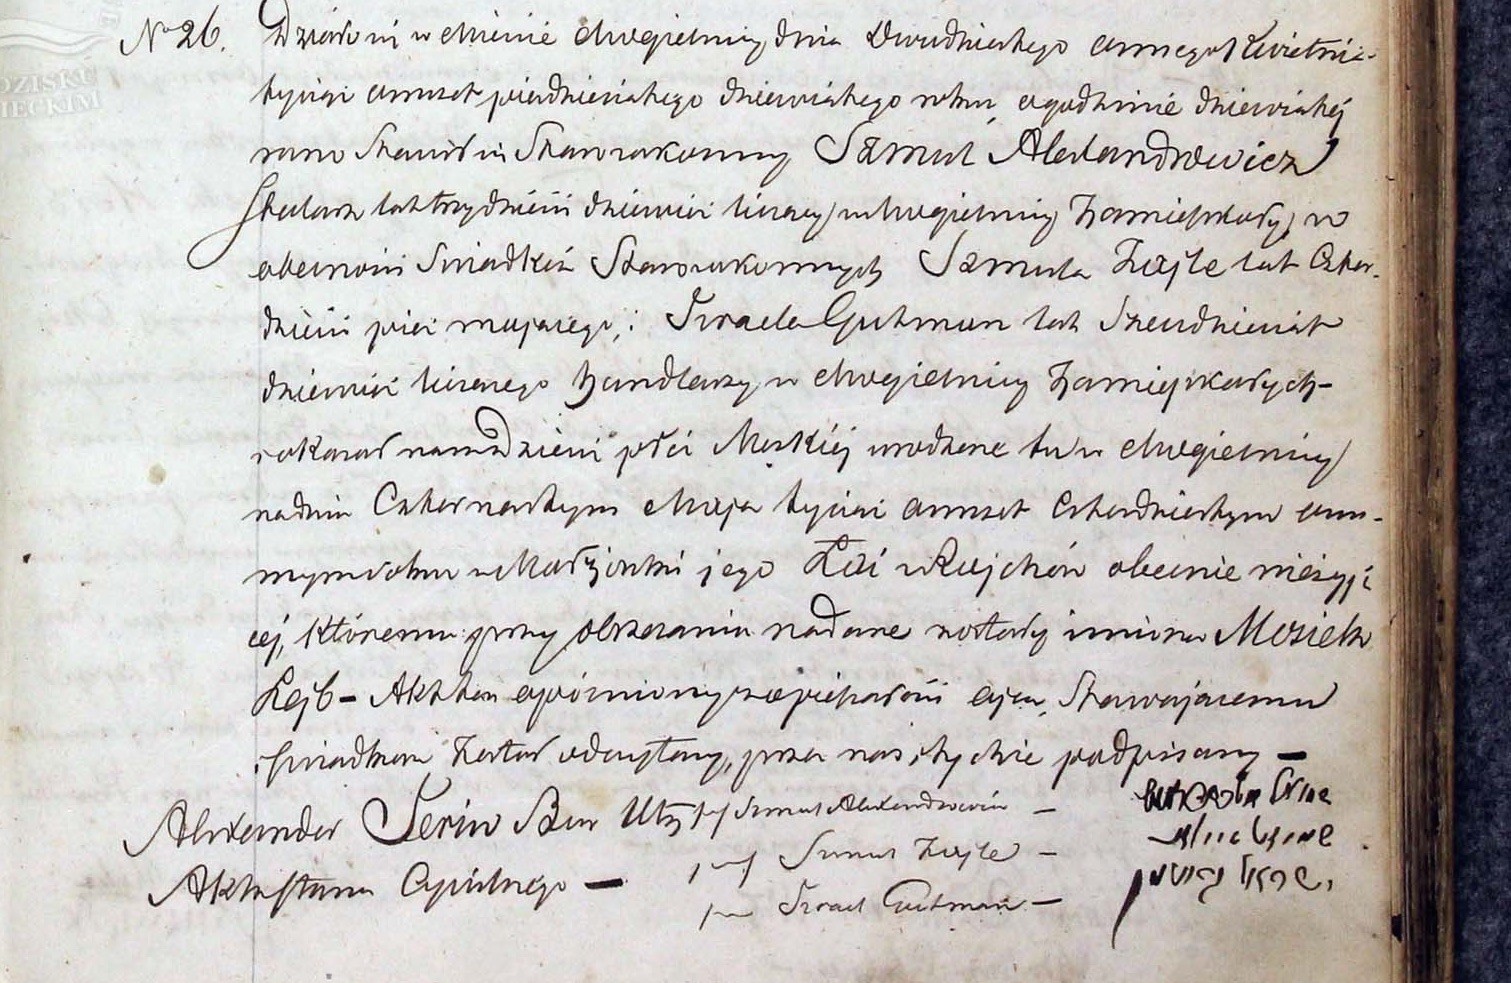 No 26. Działo się w Mieście Mogielnicy dnia Dwudziestego ósmego Kwietnia
tysiąc ósmset pięćdziesiątego dziewiątego roku, o godzinie dziewiątej
rano Stawił się Starozakonny Szmul Alexandrowicz
Szklarz lat trzydzieści dziewięć liczący w Mogielnicy Zamieszkały, w
obecności Swiadków Starozakonnych Szmula Zajle lat Czter-
dzieści pięć mającego, i Izraela Gutman lat Sześćdziesiąt
dziewięć liczącego handlarzy w Mogielnicy Zamieszkałych-
okazał nam Dziecię płci Męzkiéj urodzone tu w Mogielnicy
na dniu Czternastym Maja tysiąc ósmset czterdziestym ós-
mym roku z Małżonki jego Łai z Rajchów obecnie nieżyją-
cej, któremu przy obrzezaniu nadane zostały imiona Mosiek
Lejb - Akt ten opóźniony z opieszałości ojca, Stawającemu
i świadkom Został odczytany, przez nas i tychże podpisany -
Alexander Burm Utrz
Akta Stanu Cywilnego -
Szmul Alexandrowicz -
Szmul Zajle -
Izrael Gutman -